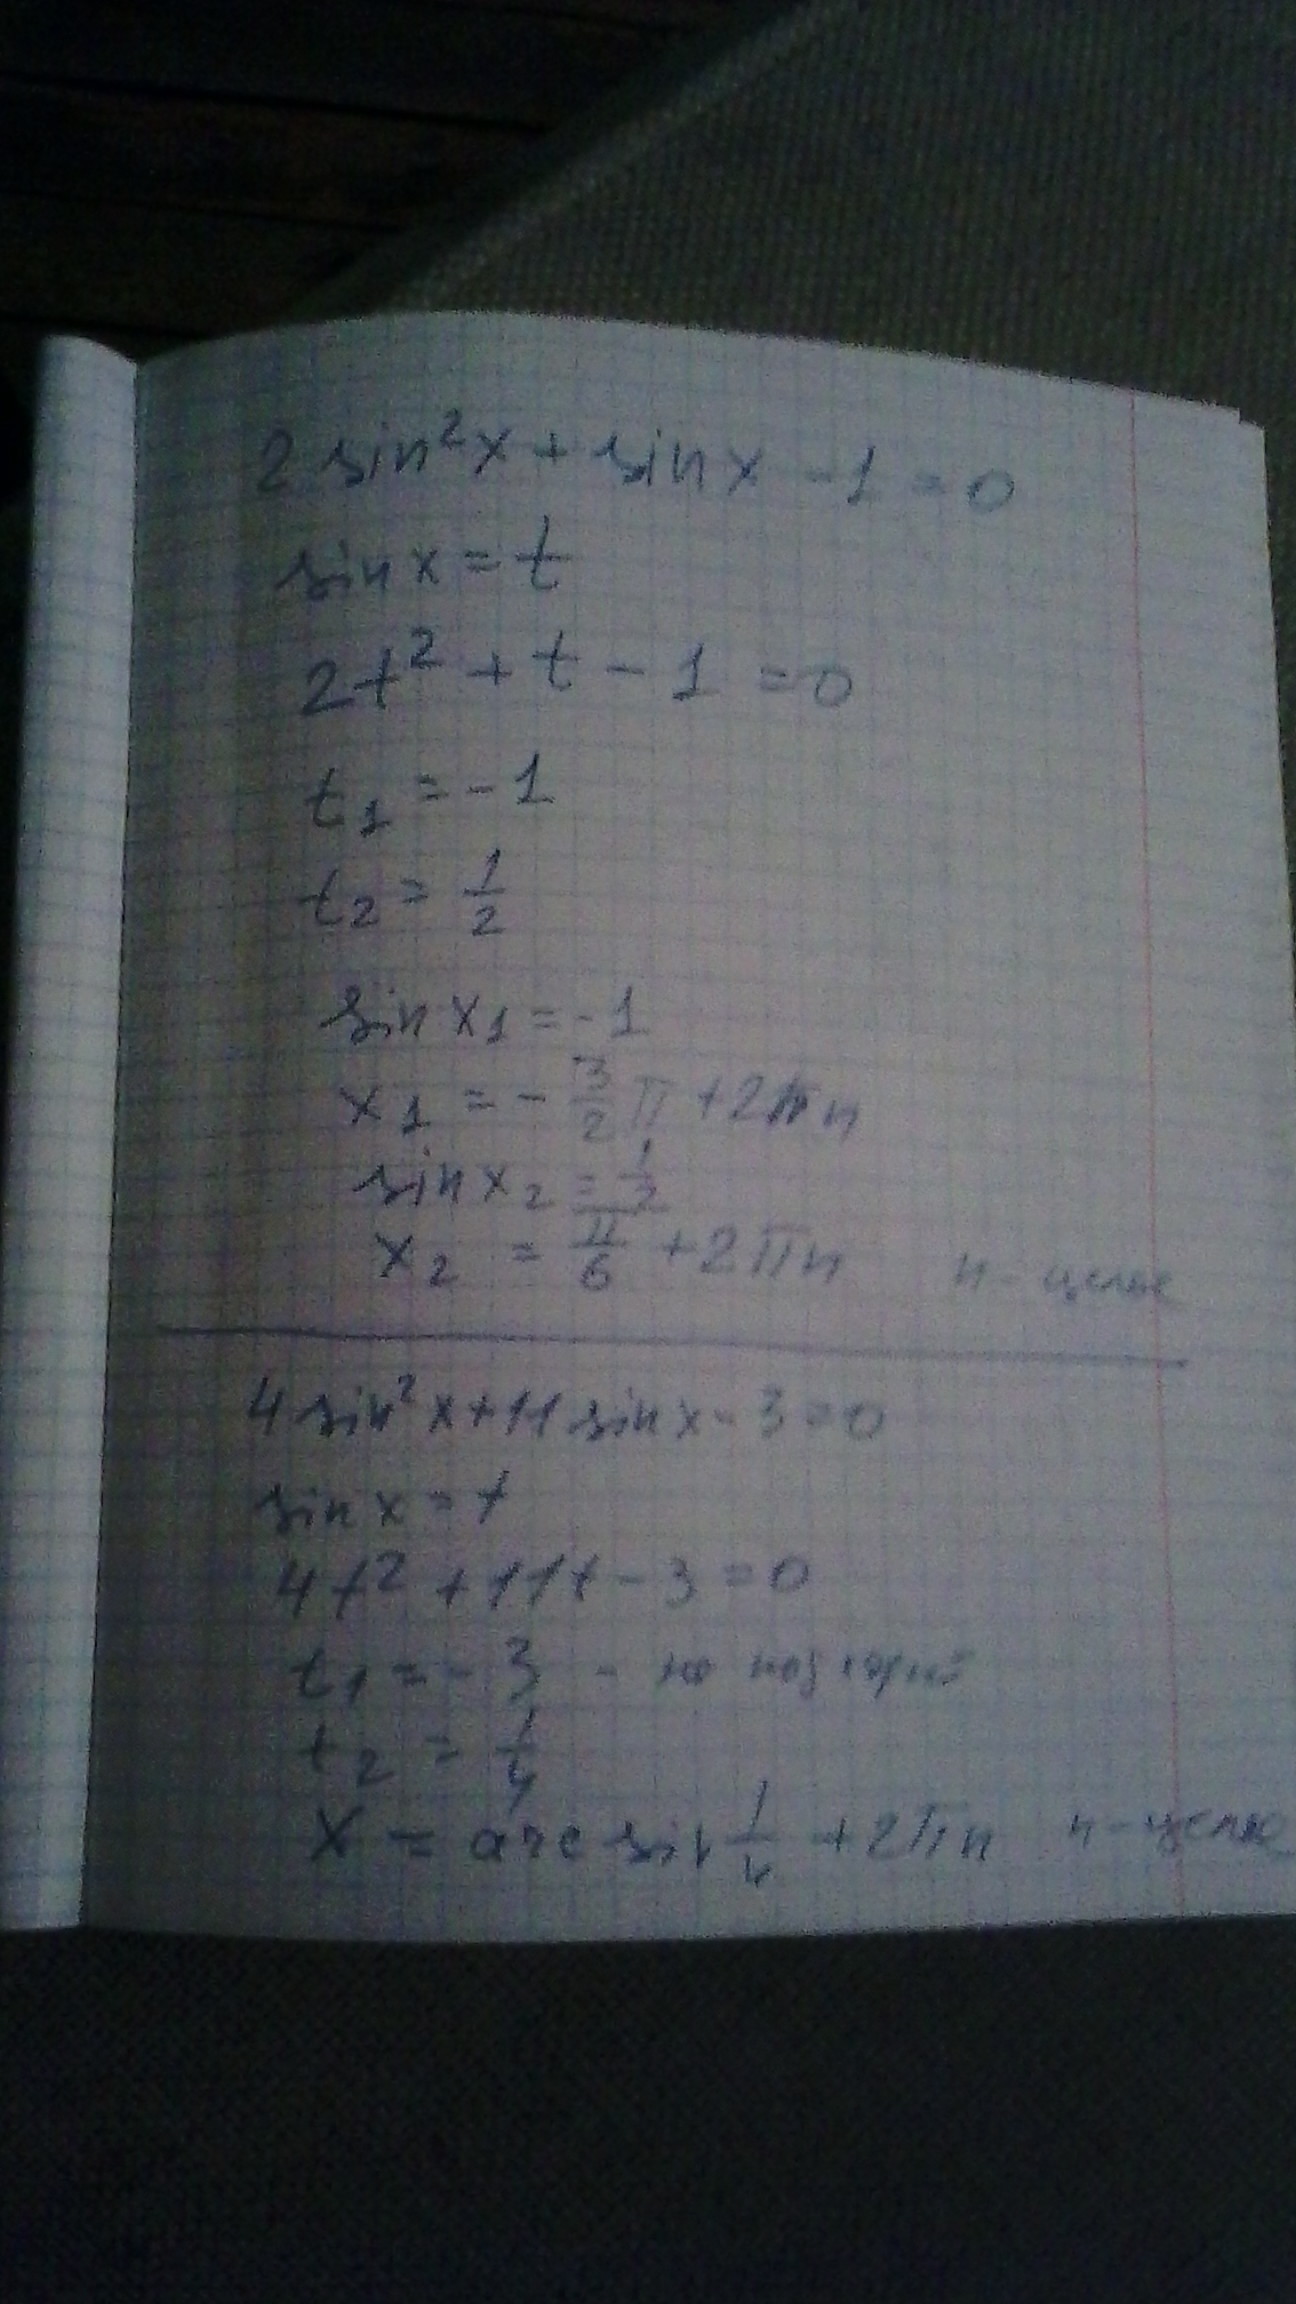 2 sin²x + sin x - 1 = 0
sin x = t
2t² + t - 1 = 0
t₁ = - 1
t₂ = 1/2
sin x₁ = - 1
x₁ = - 3/2 π + 2πn
sin x₂ = 1/2
x₂ = π/6 + 2πn n - целые
4 sin²x + 11 sin x - 3 = 0
sin x = t
4t² + 11t - 3 = 0
t₁ = - 3 - не
t₂ = 1/4
x = arc sin 1/4 + 2πn n - целые